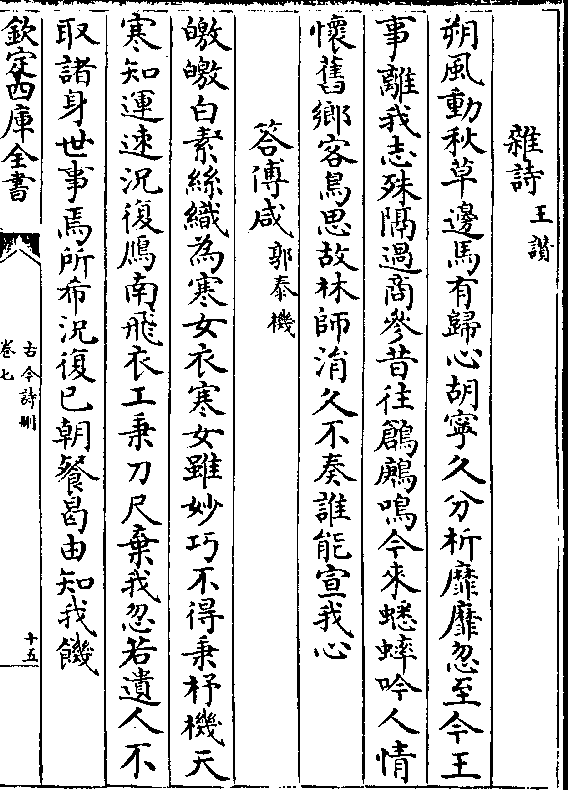 雜詩王讃
朔風動秋草邊馬有歸心胡寧久分析靡靡忽至今王
事離我志殊隔過商參昔往鶬鶊鳴今來蟋蟀吟人情
懷舊鄉客鳥思故林師涓久不奏誰能宣我心
答傅咸郭泰機
皦皦白素絲織為寒女衣寒女雖妙巧不得秉杼機天
寒知運速況復鴈南飛衣工秉刀尺棄我忽若遺人不
取諸身世事焉所希況復已朝餐曷由知我饑
欽定四庫全書
古今詩刪
卷七
十五